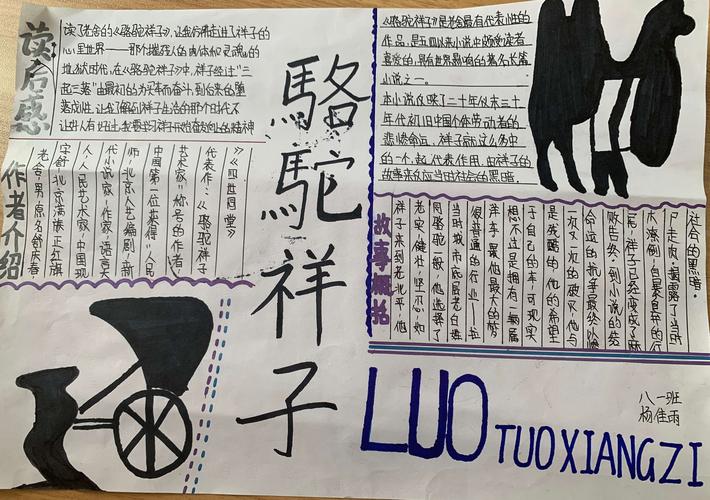 读后感
读了老舍的《骆驼祥子》,让我仿佛走进了祥子的
心里世界——那个摧残人的肉体和灵魂的
地狱时代,在《骆驼祥子》中,祥子经过“三
起三落”由最初的为买车而奋斗,到后来的堕
落成性,让我了解到祥子生活的那个时代不
让好人有好出,我要学习祥子开始奋发向上的精神
作者介绍
老舍,男,原名舒庆春
字舍予,北京满族正红旗
人,人民艺术家,中国现
代小说家,作家,语言大
师,北京人艺编剧,新
中国第一位获得“人民
艺术家”称号的作者,
代表作:《骆驼祥子
》《四世同堂》
駱駝祥子
《骆驼祥子》是老舍最有代表性的
作品,是五四以来小说中颇受读者
喜爱的,具有世界影响的著名长篇
小说之一。
本小说反映了二十年代末三十
年代初旧中国个体劳动者的
悲惨命运,祥子就这么多中
的一个起代表作用,由祥子的
故事来反应当时社会的黑暗。
故事概括
祥子来到老北平,他
老实、健壮、坚忍,如
同骆驼一般,他选择了
当时城市底层老百姓
很普通的行业——拉
洋车,最他最大的梦
想不过是拥有一辆属
于自己的车,可现实
是残酷的,他的希望
一次又一次的破灭,他与
命运的抗争最终以惨
败告终,到小说的结
尾,祥子已经变成了麻
木潦倒,自暴自弃的行
尸走肉,揭露了当时
社会的黑暗。
八一班
杨佳雨
LUO TUO XIANG ZI